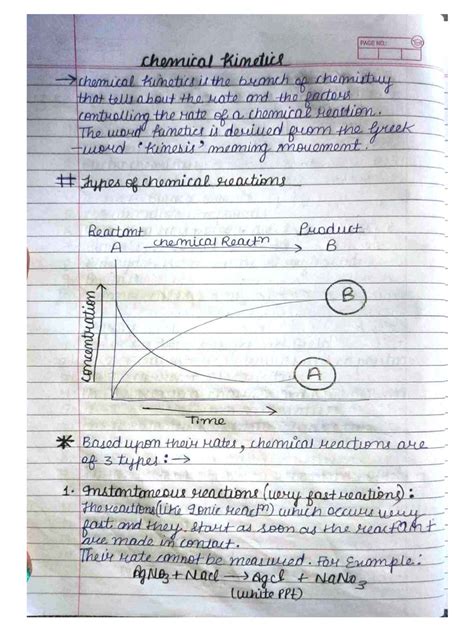 PAGE NO.:
Chemical Kinetics
→ Chemical kinetics is the branch of chemistry
that tells about the rate and the factors
controlling the rate of a chemical reaction.
The word kinetics is derived from the Greek
word "kinesis" meaning movement.
# Types of chemical reactions
Reactant Product
A chemical Reactn → B
Concentration
B
A
Time
* Based upon their rates, chemical reactions are
of 3 types : →
1. Instantaneous reactions (very fast reactions) :
The reactions (like Ionic reactn) which occurs very
fast and they start as soon as the reactant
are made in contact.
Their rate cannot be measured. For Example :
AgNO3 + NaCl → AgCl + NaNO3
(White PPt)